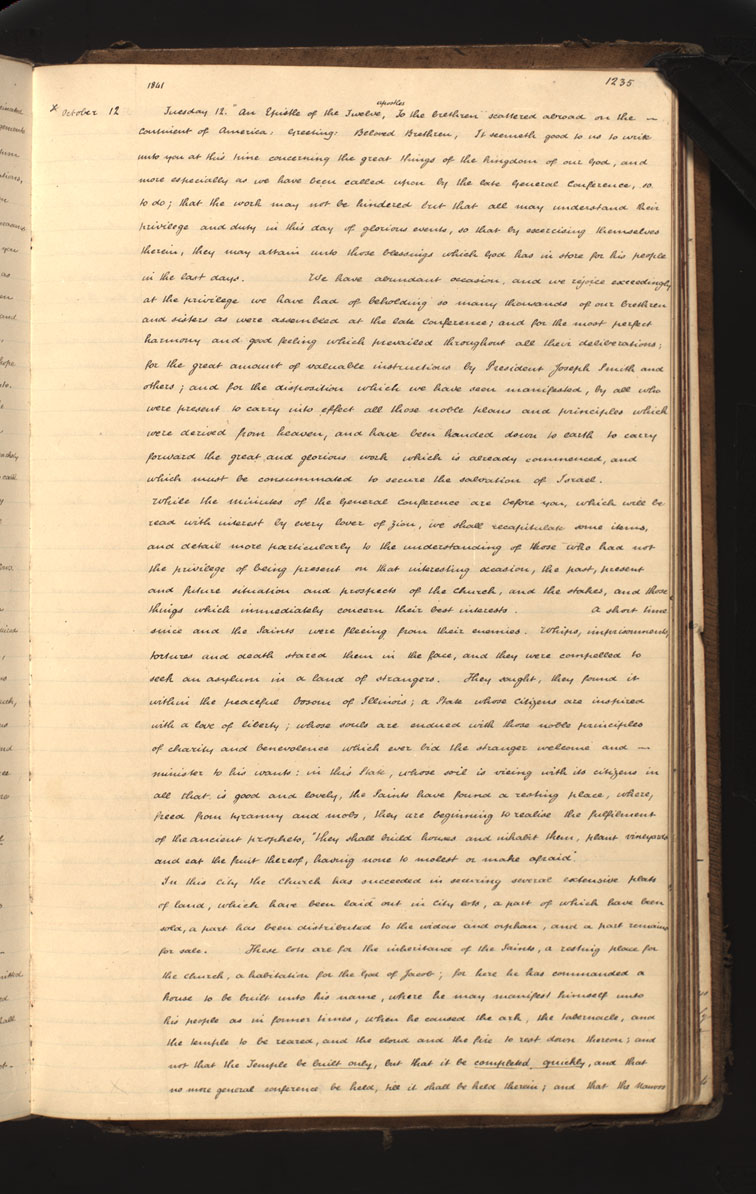 1841
1235
x October 12 Tuesday 12. "An Epistle of the Twelve, apostles To the brethren scattered abroad on the —
Continent of America: Greeting: Beloved Brethren, It seemeth good to us to write
unto you at this time concerning the great things of the kingdom of our God, and
more especially as we have been called upon by the late General Conference, so
to do; that the work may not be hindered but that all may understand their
privilege and duty in this day of glorious events, so that by exercising themselves
therein, they may attain unto those blessings which God has in store for his people
in the last days. We have abundant occasion, and we rejoice exceedingly
at the privilege we have had of beholding so many thousands of our brethren
and sisters as were assembled at the late Conference; and for the most perfect
harmony and good feeling which prevailed throughout all their deliberations;
for the great amount of valuable instructions by President Joseph Smith and
others; and for the disposition which we have seen manifested, by all who
were present to carry into effect all those noble plans and principles which
were derived from heaven, and have been handed down to earth to carry
forward the great and glorious work which is already commenced, and
which must be consummated to secure the salvation of Israel.
While the minutes of the General Conference are before you, which will be
read with interest by every lover of Zion, we shall recapitulate some items,
and detail more particularly to the understanding of those who had not
the privilege of being present on that interesting occasion, the past, present
and future situation and prospects of the Church, and the stakes, and those
things which immediately concern their best interests. A short time
since and the Saints were fleeing from their enemies. Whips, imprisonments,
tortures and death stared them in the face, and they were compelled to
seek an asylum in a land of strangers. They sought, they found it
within the peaceful bosom of Illinois; a State whose citizens are inspired
with a love of liberty; whose souls are endued with those noble principles
of charity and benevolence which ever bid the stranger welcome and —
minister to his wants: in this State, whose soil is vieing with its citizens in
all that is good and lovely, the Saints have found a resting place, where,
freed from tyranny and mobs, they are beginning to realise the fulfilment
of the ancient prophets, "they shall build houses and inhabit them, plant vineyards
and eat the fruit thereof, having none to molest or make afraid".
In this city the Church has succeeded in securing several extensive plats
of land, which have been laid out in city lots, a part of which have been
sold, a part has been distributed to the widow and orphan, and a part remains
for sale. These lots are for the inheritance of the Saints, a resting place for
the church, a habitation for the God of Jacob; for here he has commanded a
house to be built unto his name, where he may manifest himself unto
his people as in former times, when he caused the ark, the tabernacle, and
the temple to be reared, and the cloud and the fire to rest down thereon; and
not that the Temple be built only, but that it be completed quickly, and that
no more general conference be held, till it shall be held therein; and that the Nauvoo